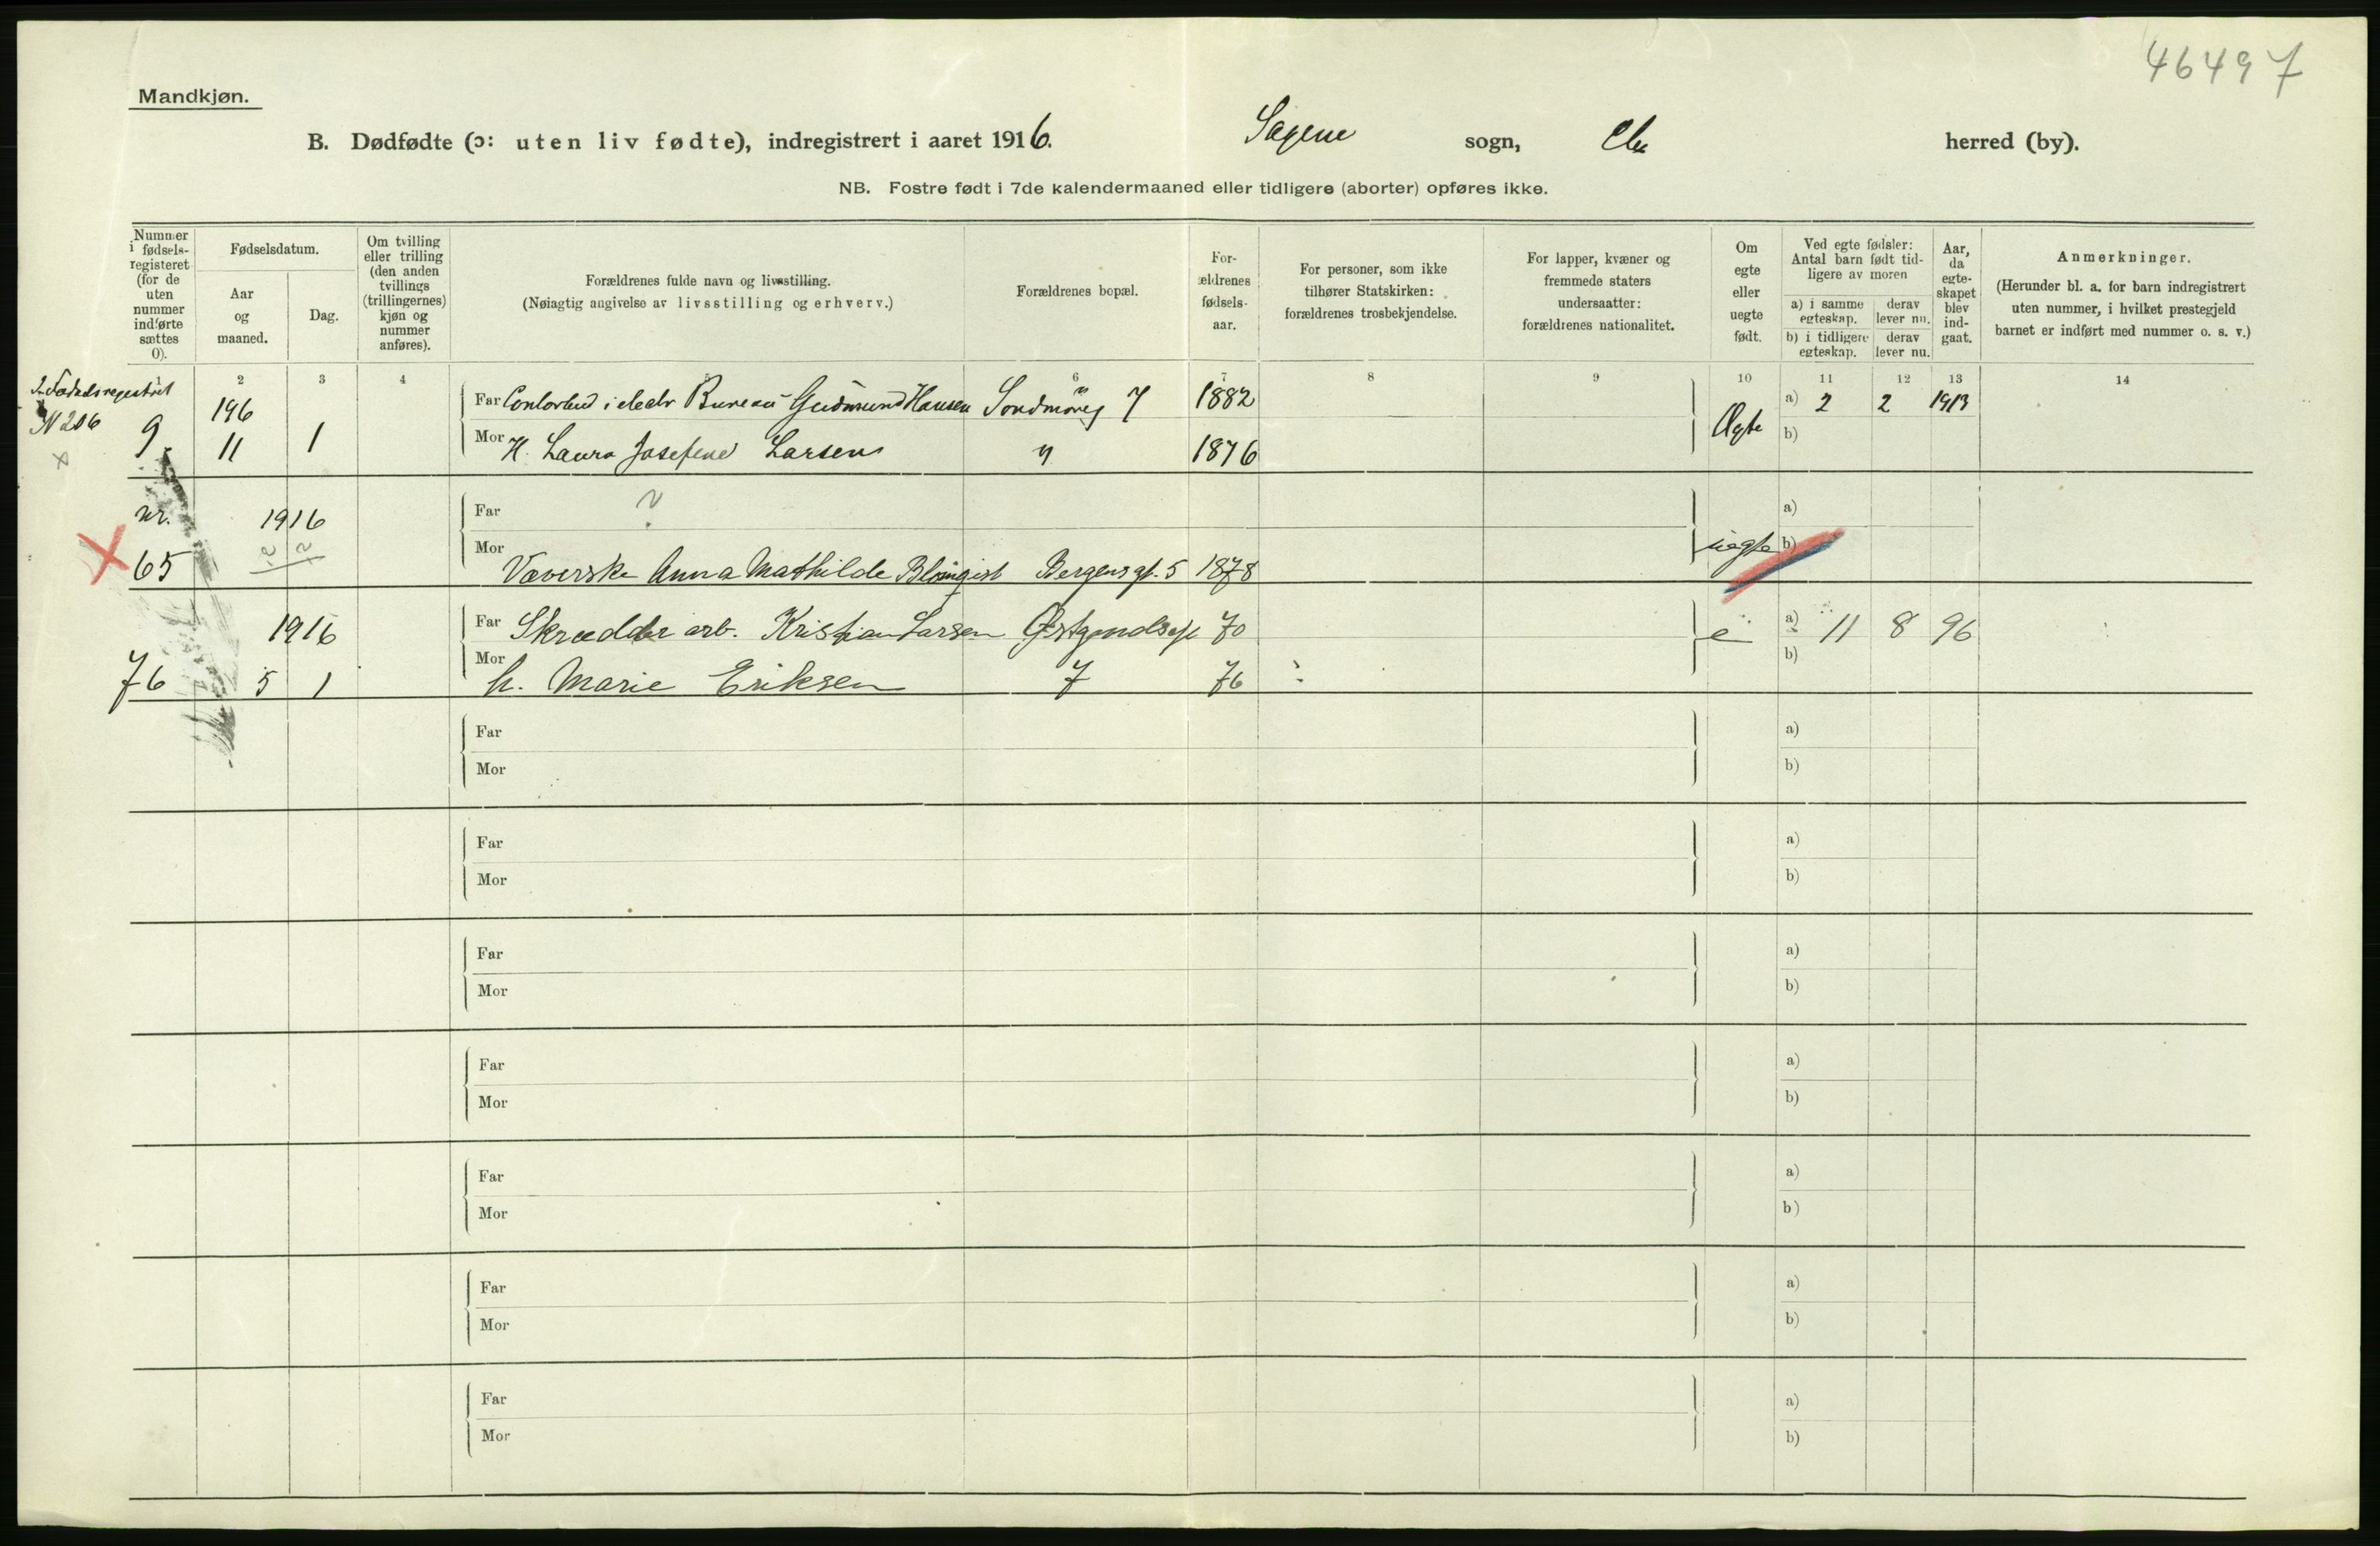 46497
Mandkjøn.
B. Dødfødte (ɔ: uten liv fødte), indregistrert i aaret 1916. Sagene sogn, herred (by).
NB. Fostre født i 7de kalendermaaned eller tidligere (aborter) opføres ikke.
Nummer i fødsels-registeret (for de uten nummer indførte sættes 0).
Fødselsdatum.
Aar og maaned.
Dag.
Om tvilling eller trilling (den anden tvillings (trillingernes) kjøn og nummer anføres).
Forældrenes fulde navn og livsstilling.
(Nøiagtig angivelse av livsstilling og erhverv.)
Forældrenes bopæl.
For-ældrenes fødsels-aar.
For personer, som ikke tilhører Statskirken: forældrenes trosbekjendelse.
For lapper, kvæner og fremmede staters undersaatter: forældrenes nationalitet.
Om egte eller uegte født.
Ved egte fødsler: Antal barn født tid-ligere av moren
a) i samme egteskap.
derav lever nu.
b) i tidligere egteskap.
derav lever nu.
Aar, da egte-skapet blev ind-gaat.
Anmerkninger.
(Herunder bl. a. for barn indregistrert uten nummer, i hvilket prestegjeld barnet er indført med nummer o. s. v.)
1 2 3 4 5 6 7 8 9 10 11 12 13 14
N 206
9. 196 Far Bureau Gudmund Hansen 7 1882 Ægte a) 2 2 1913
11 1 Mor H. Laura Josefene Larsen " 1876 b)
nr. 1916 Far ? a)
65 Mor Væverske Anna Mathilde Blomqist Bergensgt. 5 1878 uegte b)
1916 Far Skrædder arb. Kristian Larsen 70 e a) 11 8 96
76 5 1 Mor h. Marie Eriksen 7 76 b)
Far a)
Mor b)
Far a)
Mor b)
Far a)
Mor b)
Far a)
Mor b)
Far a)
Mor b)
Far a)
Mor b)
Far a)
Mor b)